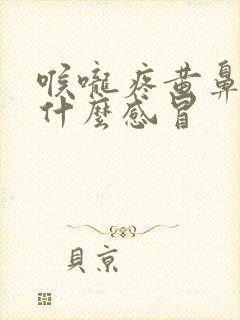 喉嚨疼黃鼻
什麼感冒
貝京